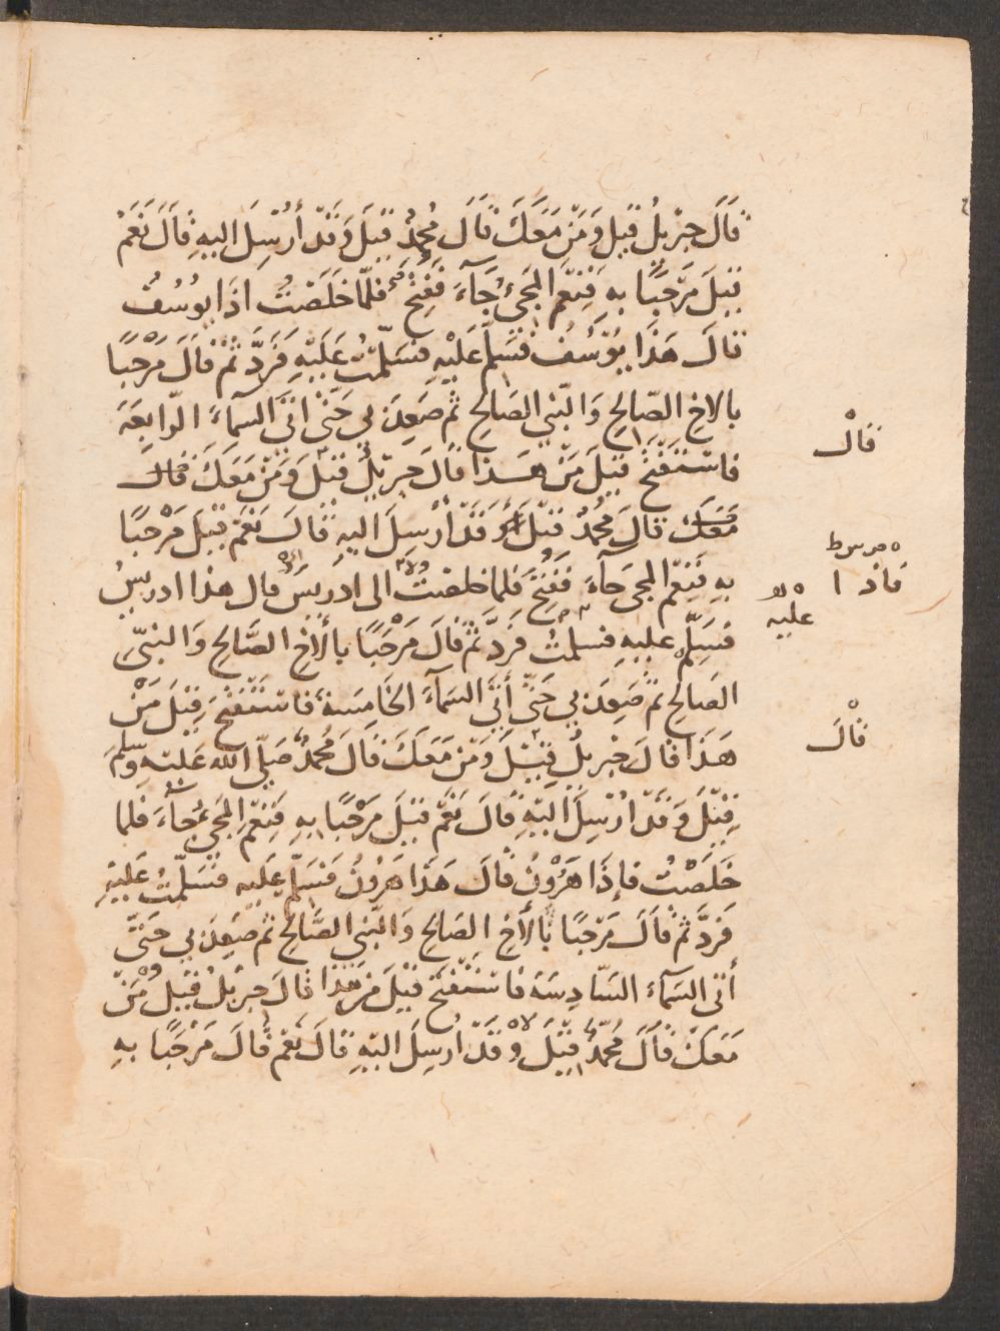 قَالَ جِبْرِيلُ قِيلَ وَمَنْ مَعَكَ قَالَ مُحَمَّدٌ قِيلَ وَقَدْ أُرْسِلَ اِلَيهِ قَالَ نَعَمْ
قِيلَ مَرْحَبًا بِهِ فَنِعْمَ الْمَجِئُ جَآءَ فَفُتِحَ فَلَمَّا خَلَصْتُ اِذَا يُوسُفُ
قالَ هَذَا يُوْسُفُ فَسَلِّمْ عَلَيْهِ فسَلَّمْتُ عَلَيْهِ فَرَدَّ ثُمَّ قَالَ مَرْحَبًا
بالاخِ الصّالِحِ وَالنَّبيِّ الصَالِحِ ثُمَّ صَعِدَ بِي حَتّى اتَى السمآءَ الرّابِعَةَ
فَاسْتَفْتَحَ قِيلَ مَنْ هَـذا قَالَ جِبْرِيلُ قِيلَ وَمَنْ مَعَكَ قال
مَعَكَ قَالَ مُحَمَّدٌ قِيْلَ أَوَ قَدْ أُرْسِلَ اليهِ قَالَ نَعَمْ قِيلَ مَرْحَبًا
بِهِ فَنِعْمَ المجئ جَآءَ فَفُتِحَ فَلما خلصْتُ الى ادريسَ قال هذا ادريسُ
فَسَلِّمْ عليهِ فسلمْتُ فَرَدَّ ثمَّ قَالَ مَرْحَبًا بالْأَخِ الصَّالِحِ وَالنَّبيِّ
الصَالحِ ثمَّ صَعِدَ بِي حَتّى أَتَى السَمآءَ الخَامِسَةَ فَاسْتَفْتَحَ قِيْلَ مَنْ
هَذَا قَالَ جِبْرِيلُ قِيْلَ وَمَنْ مَعَكَ قَالَ مُحَمَّدٌ صَلّى الله عَلَيْهِ وَسَلَّمَ
قِيْلَ وَقَدْ اُرْسِلَ اِلَيْهِ قَالَ نَعَمْ قِيلَ مَرْحَبًا بِهِ فَنِعْمَ المَجِئُ جَآءَ فَلما
خَلَصْتُ فَإِذَا هَرُوْنُ قَالَ هَذَا هَرُونُ فَسَلِّمْ عَلَيهِ فَسَلَّمْتُ عَلَيْهِ
فَرَدَّ ثُمَّ قَالَ مَرْحَبًا بِالْأَخِ الصَالِحِ وَالنَّبيِّ الصَّالِحِ ثُمَّ صَعِدَ بِي حَتّى
أَتَى السَمآءَ السّادِسَةَ فَاسْتَفْتَحَ قِيْلَ مَنْ هَذَا قَالَ جِبْرِيْلُ قِيْلَ وَمَنْ
مَعَكَ قَالَ مُحَمَّدٌ قِيْلَ وَقَدْ اُرْسِلَ اِلَيْهِ قَالَ نَعَمْ قَالَ مَرْحَبًا بِهِ
قَالَ
فَاذا
عليه
قَالَ